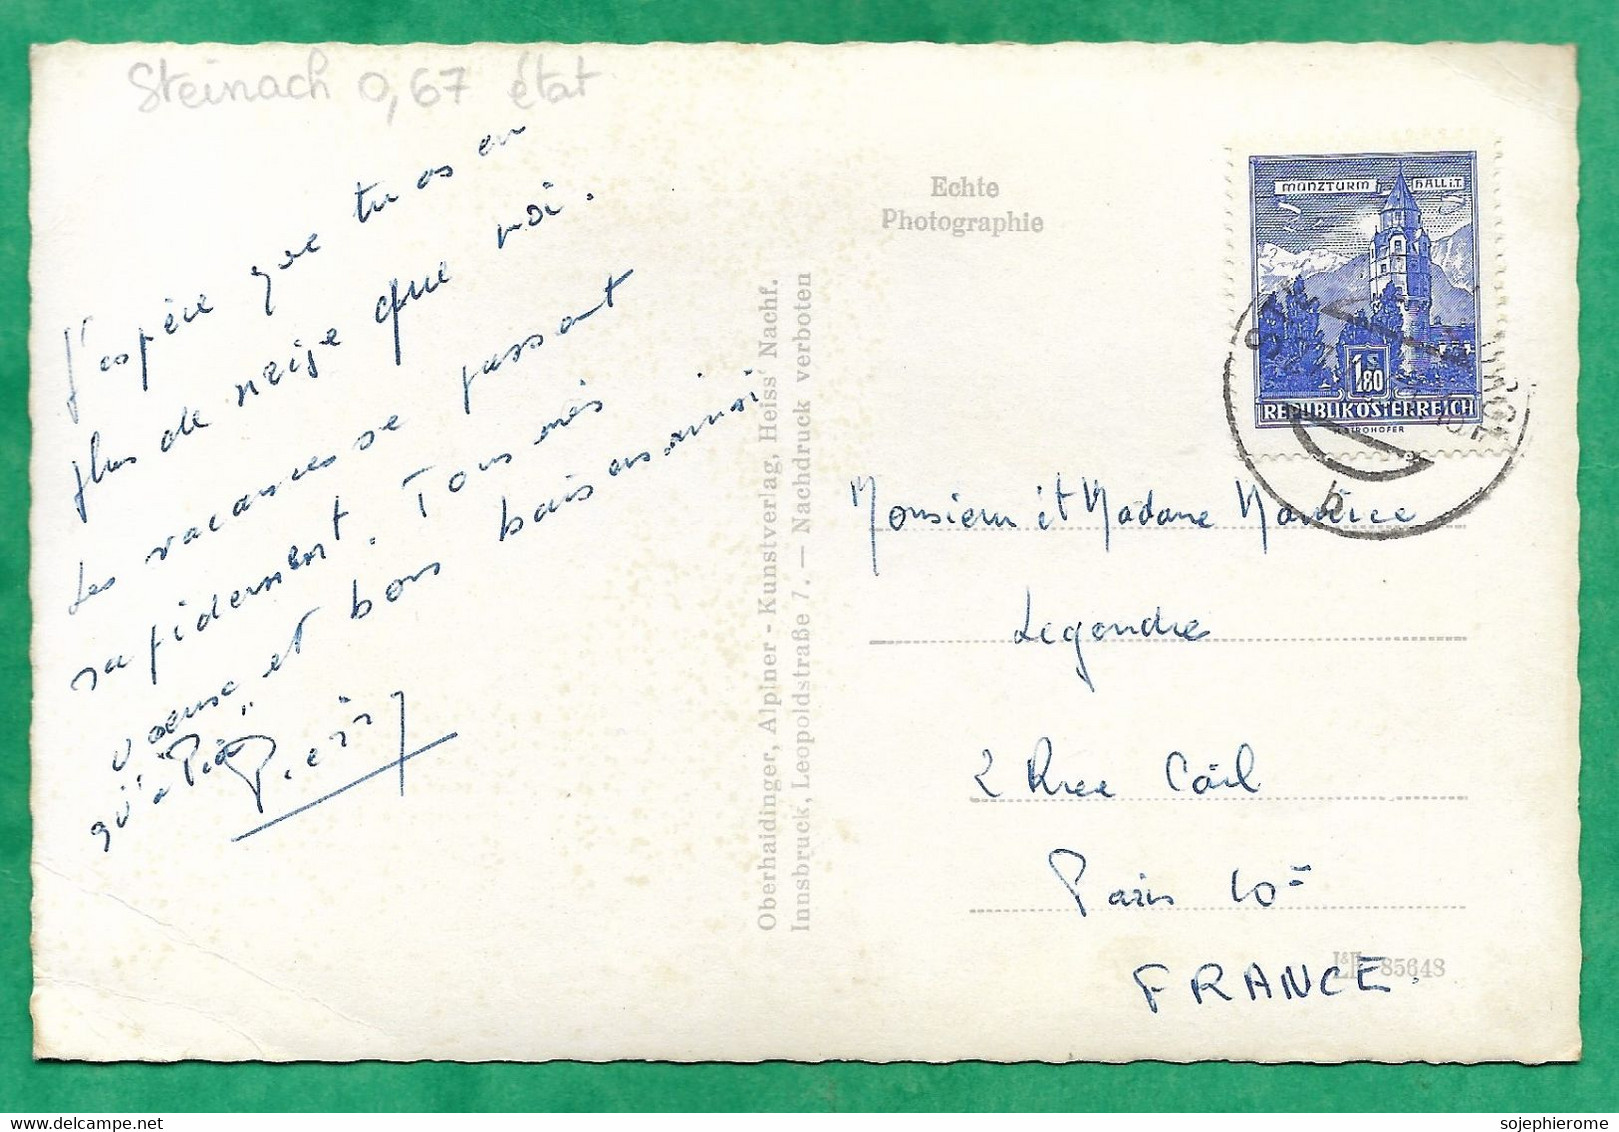 Steinach 0,67 état
J'espère que tu as en
plus de neige que moi.
Les vacances se passent
rapidement. Tous mes
voeux et bons baisers ainsi
qu'à "Pia"
Echte
Photographie
Oberhaidinger, Alpiner - Kunstverlag, Heiss' Nachf.
Innsbruck, Leopoldstraße 7. — Nachdruck verboten
MÜNZTURM HALL i.T.
1S
1,80
REPUBLIK ÖSTERREICH
b
Monsieur et Madame Maurice
Legendre
2 Rue Cail
Paris 10e
FRANCE.
85648
sojephierome